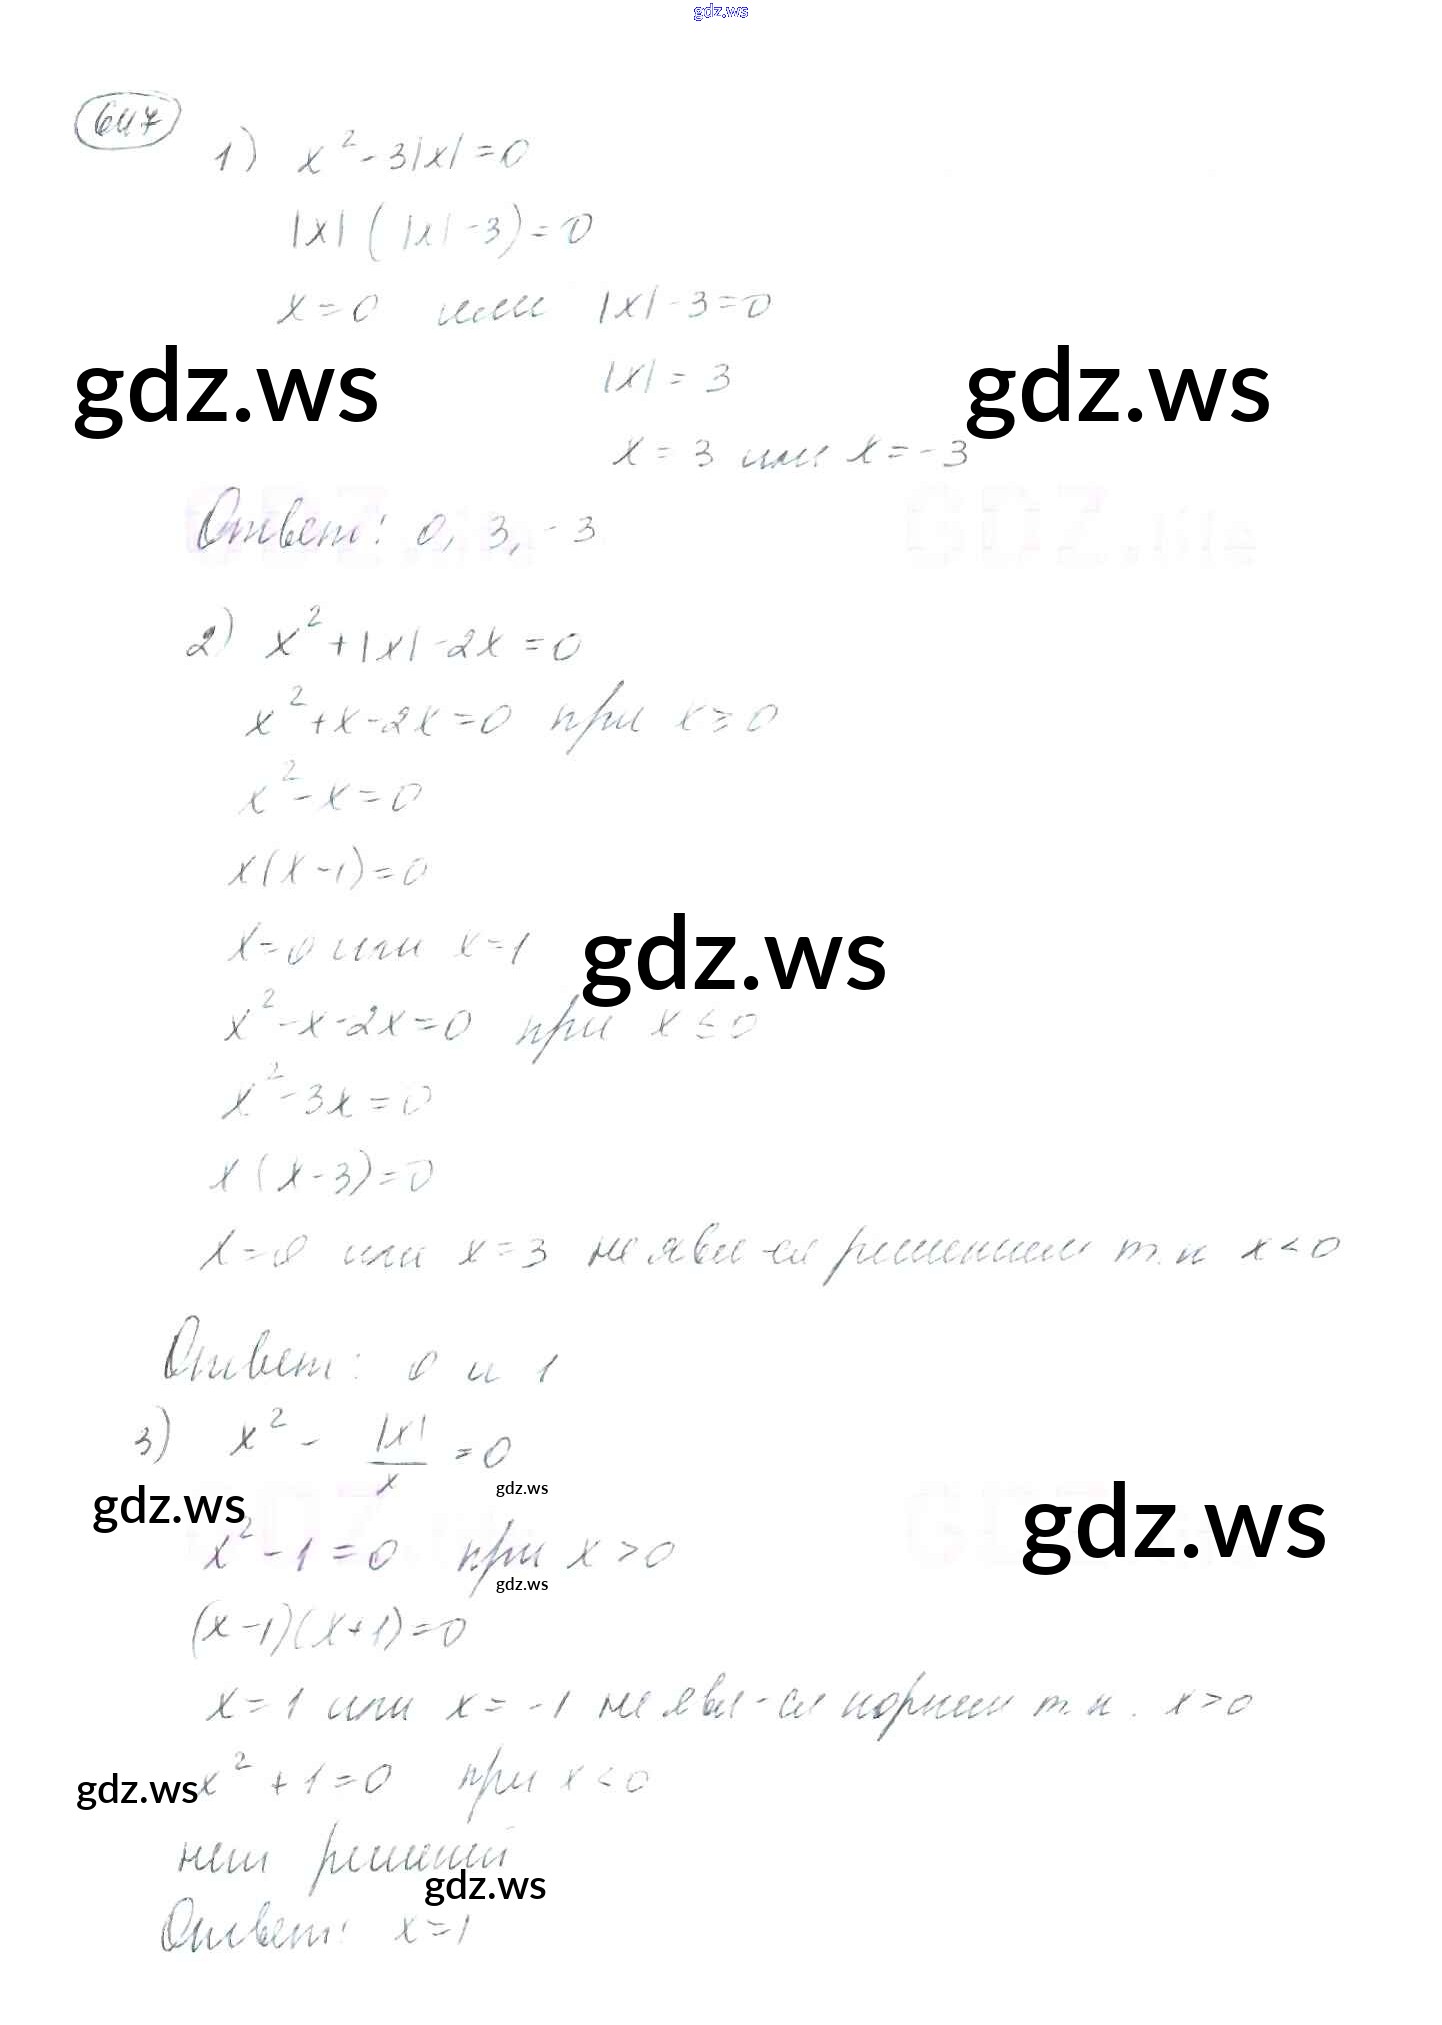 gdz.ws
647
1) x² - 3|x| = 0
|x| ( |x| - 3) = 0
x = 0 или |x| - 3 = 0
gdz.ws gdz.ws
|x| = 3
x = 3 или x = -3
Ответ: 0, 3, -3
GDZ.life GDZ.life
2) x² + |x| - 2x = 0
x² + x - 2x = 0 при x ≥ 0
x² - x = 0
x(x - 1) = 0
x = 0 или x = 1
gdz.ws
x² - x - 2x = 0 при x ≤ 0
x² - 3x = 0
x (x - 3) = 0
x = 0 или x = 3 не явл-ся решением т.к x < 0
Ответ: 0 и 1
3) x² - |x|/x = 0
gdz.ws gdz.ws gdz.ws
x² - 1 = 0 при x > 0
gdz.ws
(x - 1)(x + 1) = 0
x = 1 или x = -1 не явл-ся корнем т.к. x > 0
gdz.ws x² + 1 = 0 при x < 0
нет решений
gdz.ws
Ответ: x = 1